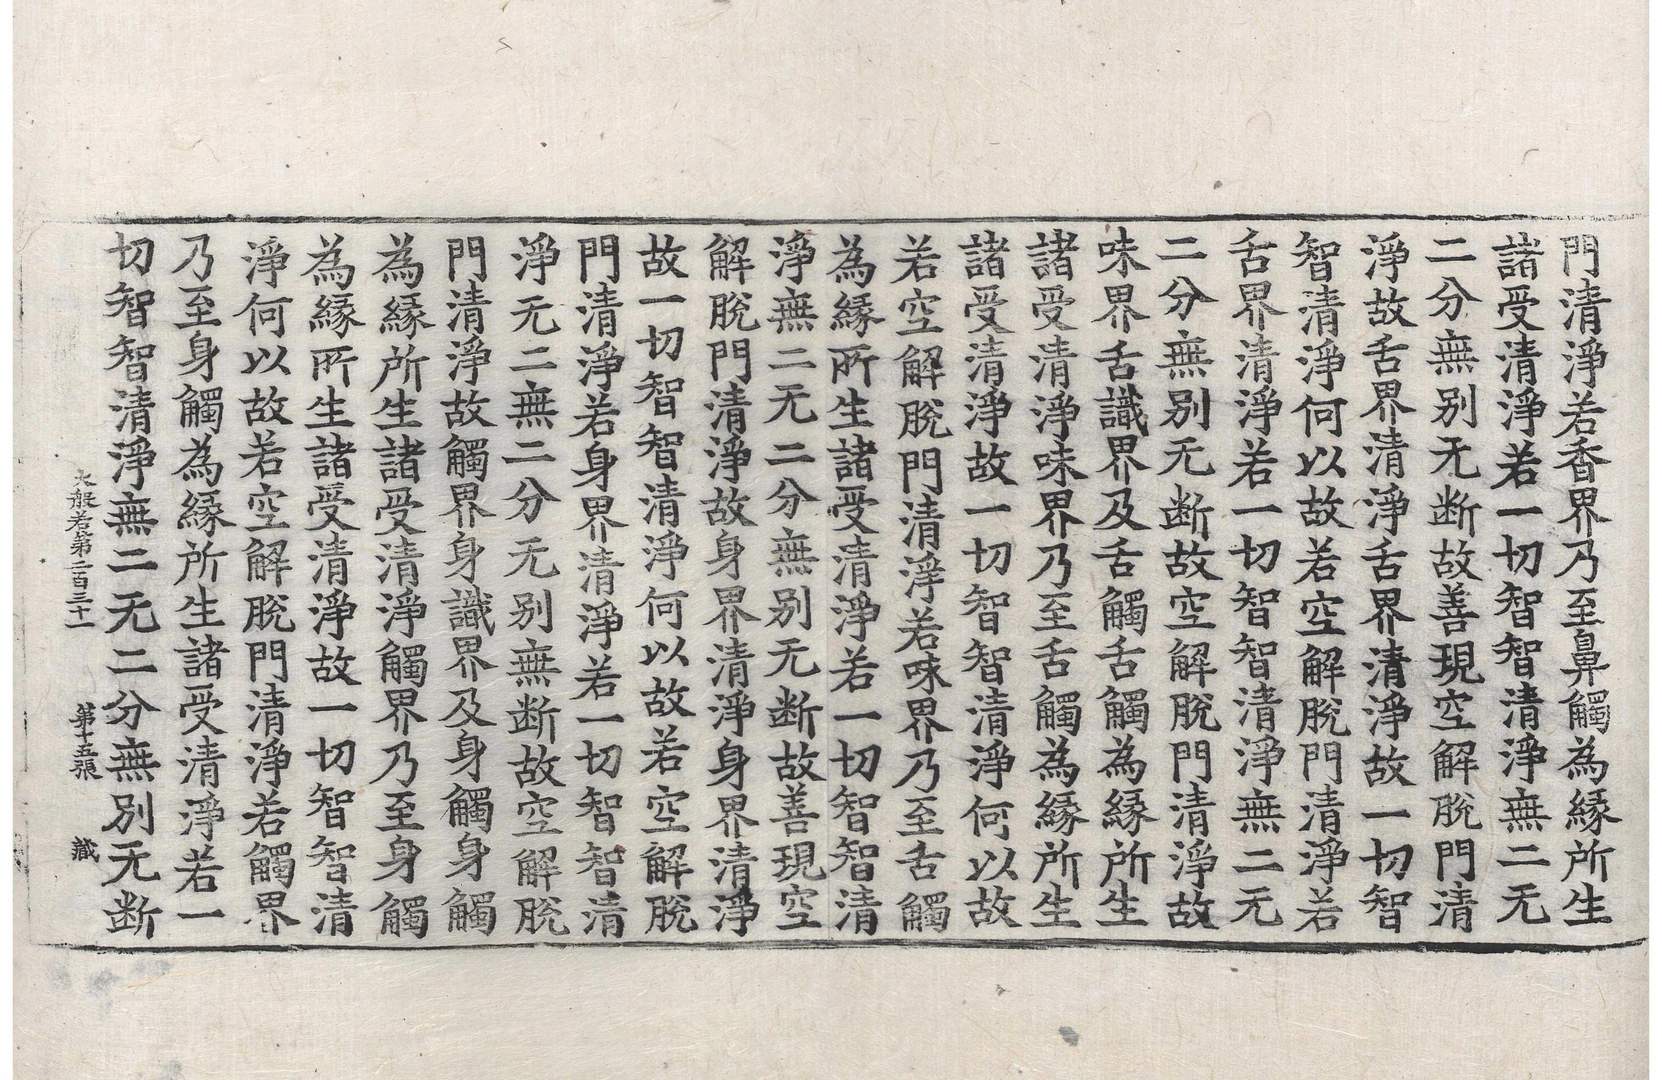 門清淨若香界乃至鼻觸為緣所生
諸受清淨若一切智智清淨無二无
二分無別无断故善現空解脫門清
淨故舌界清淨舌界清淨故一切智
智清淨何以故若空解脫門清淨若
舌界清淨若一切智智清淨無二无
二分無別无断故空解脫門清淨故
味界舌識界及舌觸舌觸為緣所生
諸受清淨味界乃至舌觸為緣所生
諸受清淨故一切智智清淨何以故
若空解脫門清淨若味界乃至舌觸
為緣所生諸受清淨若一切智智清
淨無二无二分無別无断故善現空
解脫門清淨故身界清淨身界清淨
故一切智智清淨何以故若空解脫
門清淨若身界清淨若一切智智清
淨无二無二分无別無断故空解脫
門清淨故觸界身識界及身觸身觸
為緣所生諸受清淨觸界乃至身觸
為緣所生諸受清淨故一切智智清
淨何以故若空解脫門清淨若觸界
乃至身觸為緣所生諸受清淨若一
切智智清淨無二无二分無別无断
大般若第二百三十一 第十五張 藏